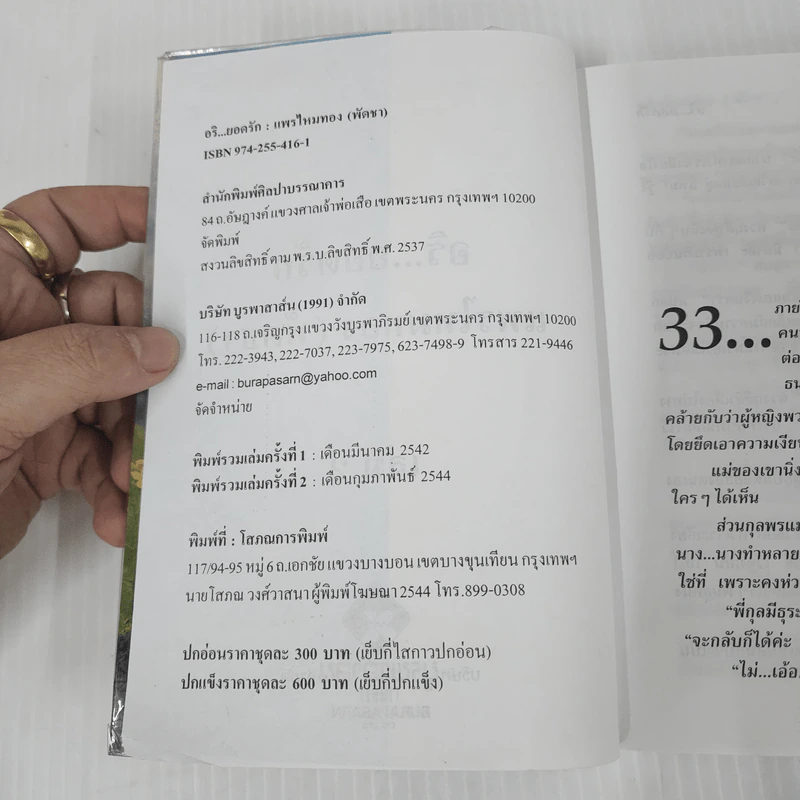 อริ...ยอดรัก : แพรไหมทอง (พัดชา)
ISBN 974-255-416-1
สำนักพิมพ์ศิลปาบรรณาคาร
84 ถ.อัษฎางค์ แขวงศาลเจ้าพ่อเสือ เขตพระนคร กรุงเทพฯ 10200
จัดพิมพ์
สงวนลิขสิทธิ์ ตาม พ.ร.บ.ลิขสิทธิ์ พ.ศ. 2537
บริษัท บูรพาสาส์น (1991) จำกัด
116-118 ถ.เจริญกรุง แขวงวังบูรพาภิรมย์ เขตพระนคร กรุงเทพฯ 10200
โทร. 222-3943, 222-7037, 223-7975, 623-7498-9 โทรสาร 221-9446
e-mail : burapasarn@yahoo.com
จัดจำหน่าย
พิมพ์รวมเล่มครั้งที่ 1 : เดือนมีนาคม 2542
พิมพ์รวมเล่มครั้งที่ 2 : เดือนกุมภาพันธ์ 2544
พิมพ์ที่ : โสภณการพิมพ์
117/94-95 หมู่ 6 ถ.เอกชัย แขวงบางบอน เขตบางขุนเทียน กรุงเทพฯ
นายโสภณ วงศ์วาสนา ผู้พิมพ์โฆษณา 2544 โทร.899-0308
ปกอ่อนราคาชุดละ 300 บาท (เย็บกี่ไสกาวปกอ่อน)
ปกแข็งราคาชุดละ 600 บาท (เย็บกี่ปกแข็ง)
33...
คน
ต่อ
คล้ายกับว่าผู้หญิงพว
โดยยึดเอาความเงียบ
แม่ของเขานิ่ง
ใคร ๆ ได้เห็น
ส่วนกุลพรแม่
นาง...นางทำหลาย
ใช่ที่ เพราะคงห่ว
“พี่กุลมีธุระ
“จะกลับก็ได้ค่ะ
“ไม่...เอ้อ.